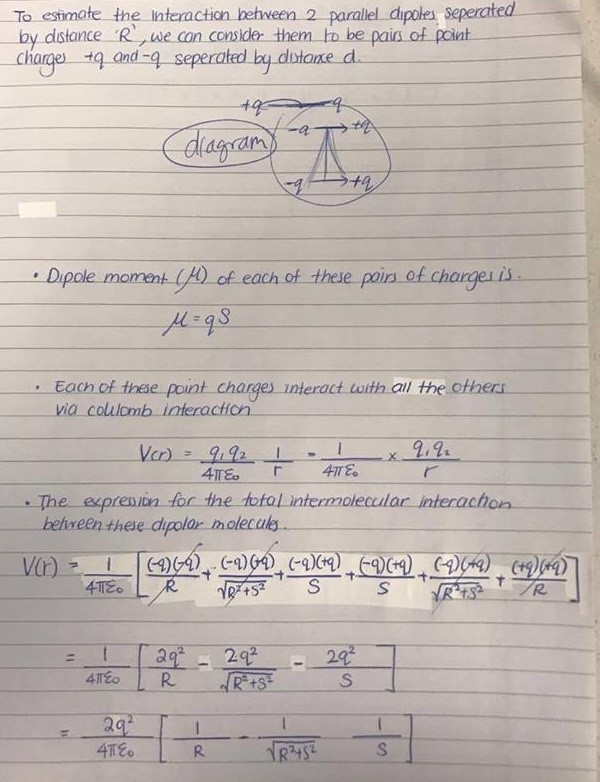 To estimate the interaction between 2 parallel dipoles seperated
by distance 'R', we can consider them to be pairs of point
charges +q and -q seperated by distance d.
+q -q
-q +q
diagram
-q +q
• Dipole moment (μ) of each of these pairs of charges is.
μ = qS
• Each of these point charges interact with all the others
via coulomb interaction
V(r) = q₁q₂/4πε₀ 1/r = 1/4πε₀ × q₁q₂/r
• The expression for the total intermolecular interaction
between these dipolar molecules.
V(r) = 1/4πε₀ [(-q)(-q)/R + (-q)(+q)/√R²+S² + (-q)(+q)/S + (-q)(+q)/S + (-q)(+q)/√R²+S² + (+q)(+q)/R]
= 1/4πε₀ [2q²/R - 2q²/√R²+S² - 2q²/S]
= 2q²/4πε₀ [1/R - 1/√R²+S² - 1/S]